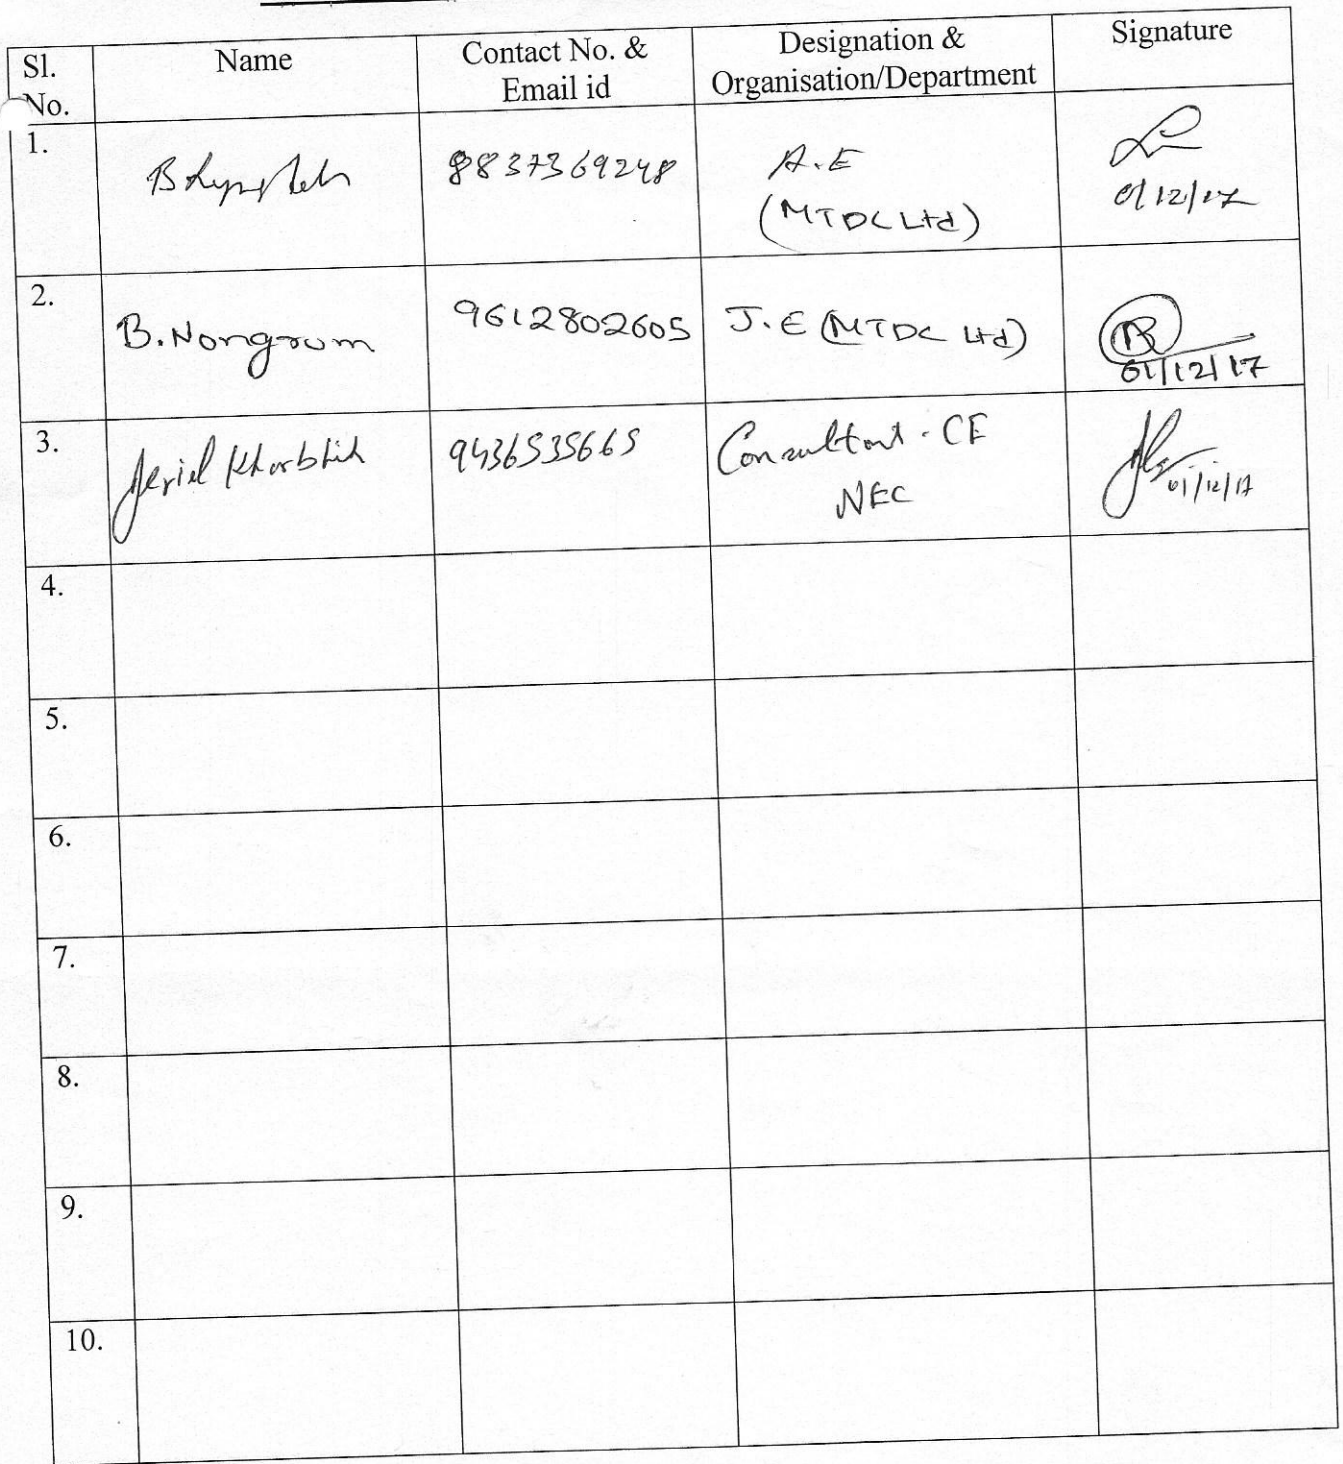 Sl.
No.
Name
Contact No. &
Email id
Designation &
Organisation/Department
Signature
1.
8837369248
A.E
(MTDC Ltd)
01/12/17
2.
B. Nongrum
9612802605
J.E (MTDC Ltd)
01/12/17
3.
Jeriel Kharbhih
9436535665
Consultant - CE
NEC
01/12/17
4.
5.
6.
7.
8.
9.
10.